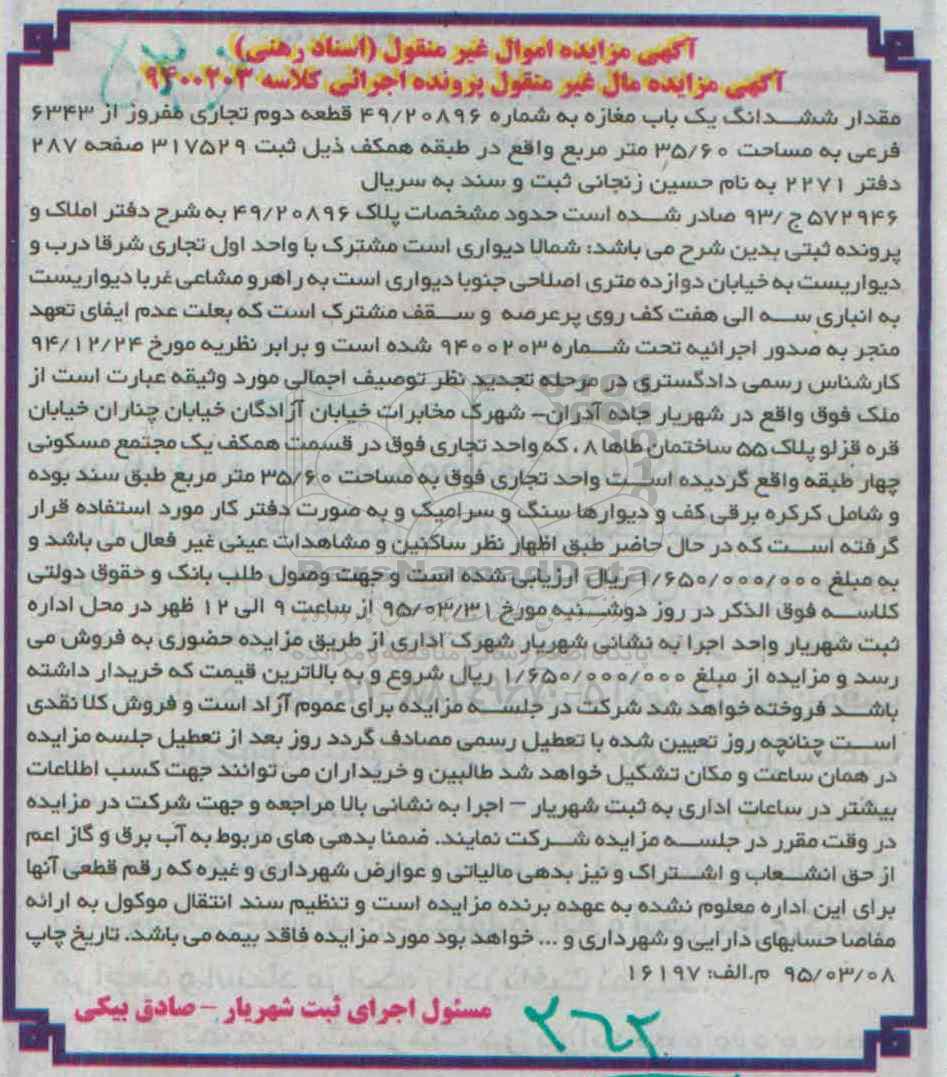 آگهی مزایده اموال غیر منقول (اسناد رهنی)
آگهی مزایده مال غیر منقول پرونده اجرائی کلاسه ۹۴۰۰۲۰۳
مقدار ششدانگ یک باب مغازه به شماره ۴۹/۲۰۸۹۶ قطعه دوم تجاری مفروز از ۶۳۴۳
فرعی به مساحت ۳۵/۶۰ متر مربع واقع در طبقه همکف ذیل ثبت ۳۱۷۵۲۹ صفحه ۲۸۷
دفتر ۲۲۷۱ به نام حسین زنجانی ثبت و سند به سریال
۵۷۲۹۴۶ ج /۹۳ صادر شده است حدود مشخصات پلاک ۴۹/۲۰۸۹۶ به شرح دفتر املاک و
پرونده ثبتی بدین شرح می باشد: شمالا دیواری است مشترک با واحد اول تجاری شرقا درب و
دیواریست به خیابان دوازده متری اصلاحی جنوبا دیواری است به راهرو مشاعی غربا دیواریست
به انباری سه الی هفت کف روی پرعرصه و سقف مشترک است که بعلت عدم ایفای تعهد
منجر به صدور اجرائیه تحت شماره ۹۴۰۰۲۰۳ شده است و برابر نظریه مورخ ۹۴/۱۲/۲۴
کارشناس رسمی دادگستری در مرحله تجدید نظر توصیف اجمالی مورد وثیقه عبارت است از
ملک فوق واقع در شهریار جاده آدران- شهرک مخابرات خیابان آزادگان خیابان چناران خیابان
قره قزلو پلاک ۵۵ ساختمان طاها ۸ ، که واحد تجاری فوق در قسمت همکف یک مجتمع مسکونی
چهار طبقه واقع گردیده است واحد تجاری فوق به مساحت ۳۵/۶۰ متر مربع طبق سند بوده
و شامل کرکره برقی کف و دیوارها سنگ و سرامیک و به صورت دفتر کار مورد استفاده قرار
گرفته است که در حال حاضر طبق اظهار نظر ساکنین و مشاهدات عینی غیر فعال می باشد و
به مبلغ ۱/۶۵۰/۰۰۰/۰۰۰ ریال ارزیابی شده است و جهت وصول طلب بانک و حقوق دولتی
کلاسه فوق الذکر در روز دوشنبه مورخ ۹۵/۰۳/۳۱ از ساعت ۹ الی ۱۲ ظهر در محل اداره
ثبت شهریار واحد اجرا به نشانی شهریار شهرک اداری از طریق مزایده حضوری به فروش می
رسد و مزایده از مبلغ ۱/۶۵۰/۰۰۰/۰۰۰ ریال شروع و به بالاترین قیمت که خریدار داشته
باشد فروخته خواهد شد شرکت در جلسه مزایده برای عموم آزاد است و فروش کلا نقدی
است چنانچه روز تعیین شده با تعطیل رسمی مصادف گردد روز بعد از تعطیل جلسه مزایده
در همان ساعت و مکان تشکیل خواهد شد طالبین و خریداران می توانند جهت کسب اطلاعات
بیشتر در ساعات اداری به ثبت شهریار – اجرا به نشانی بالا مراجعه و جهت شرکت در مزایده
در وقت مقرر در جلسه مزایده شرکت نمایند. ضمنا بدهی های مربوط به آب برق و گاز اعم
از حق انشعاب و اشتراک و نیز بدهی مالیاتی و عوارض شهرداری و غیره که رقم قطعی آنها
برای این اداره معلوم نشده به عهده برنده مزایده است و تنظیم سند انتقال موکول به ارائه
مفاصا حسابهای دارایی و شهرداری و ... خواهد بود مورد مزایده فاقد بیمه می باشد. تاریخ چاپ
۹۵/۰۳/۰۸ م.الف: ۱۶۱۹۷
مسئول اجرای ثبت شهریار - صادق بیکی
ParsNamadData